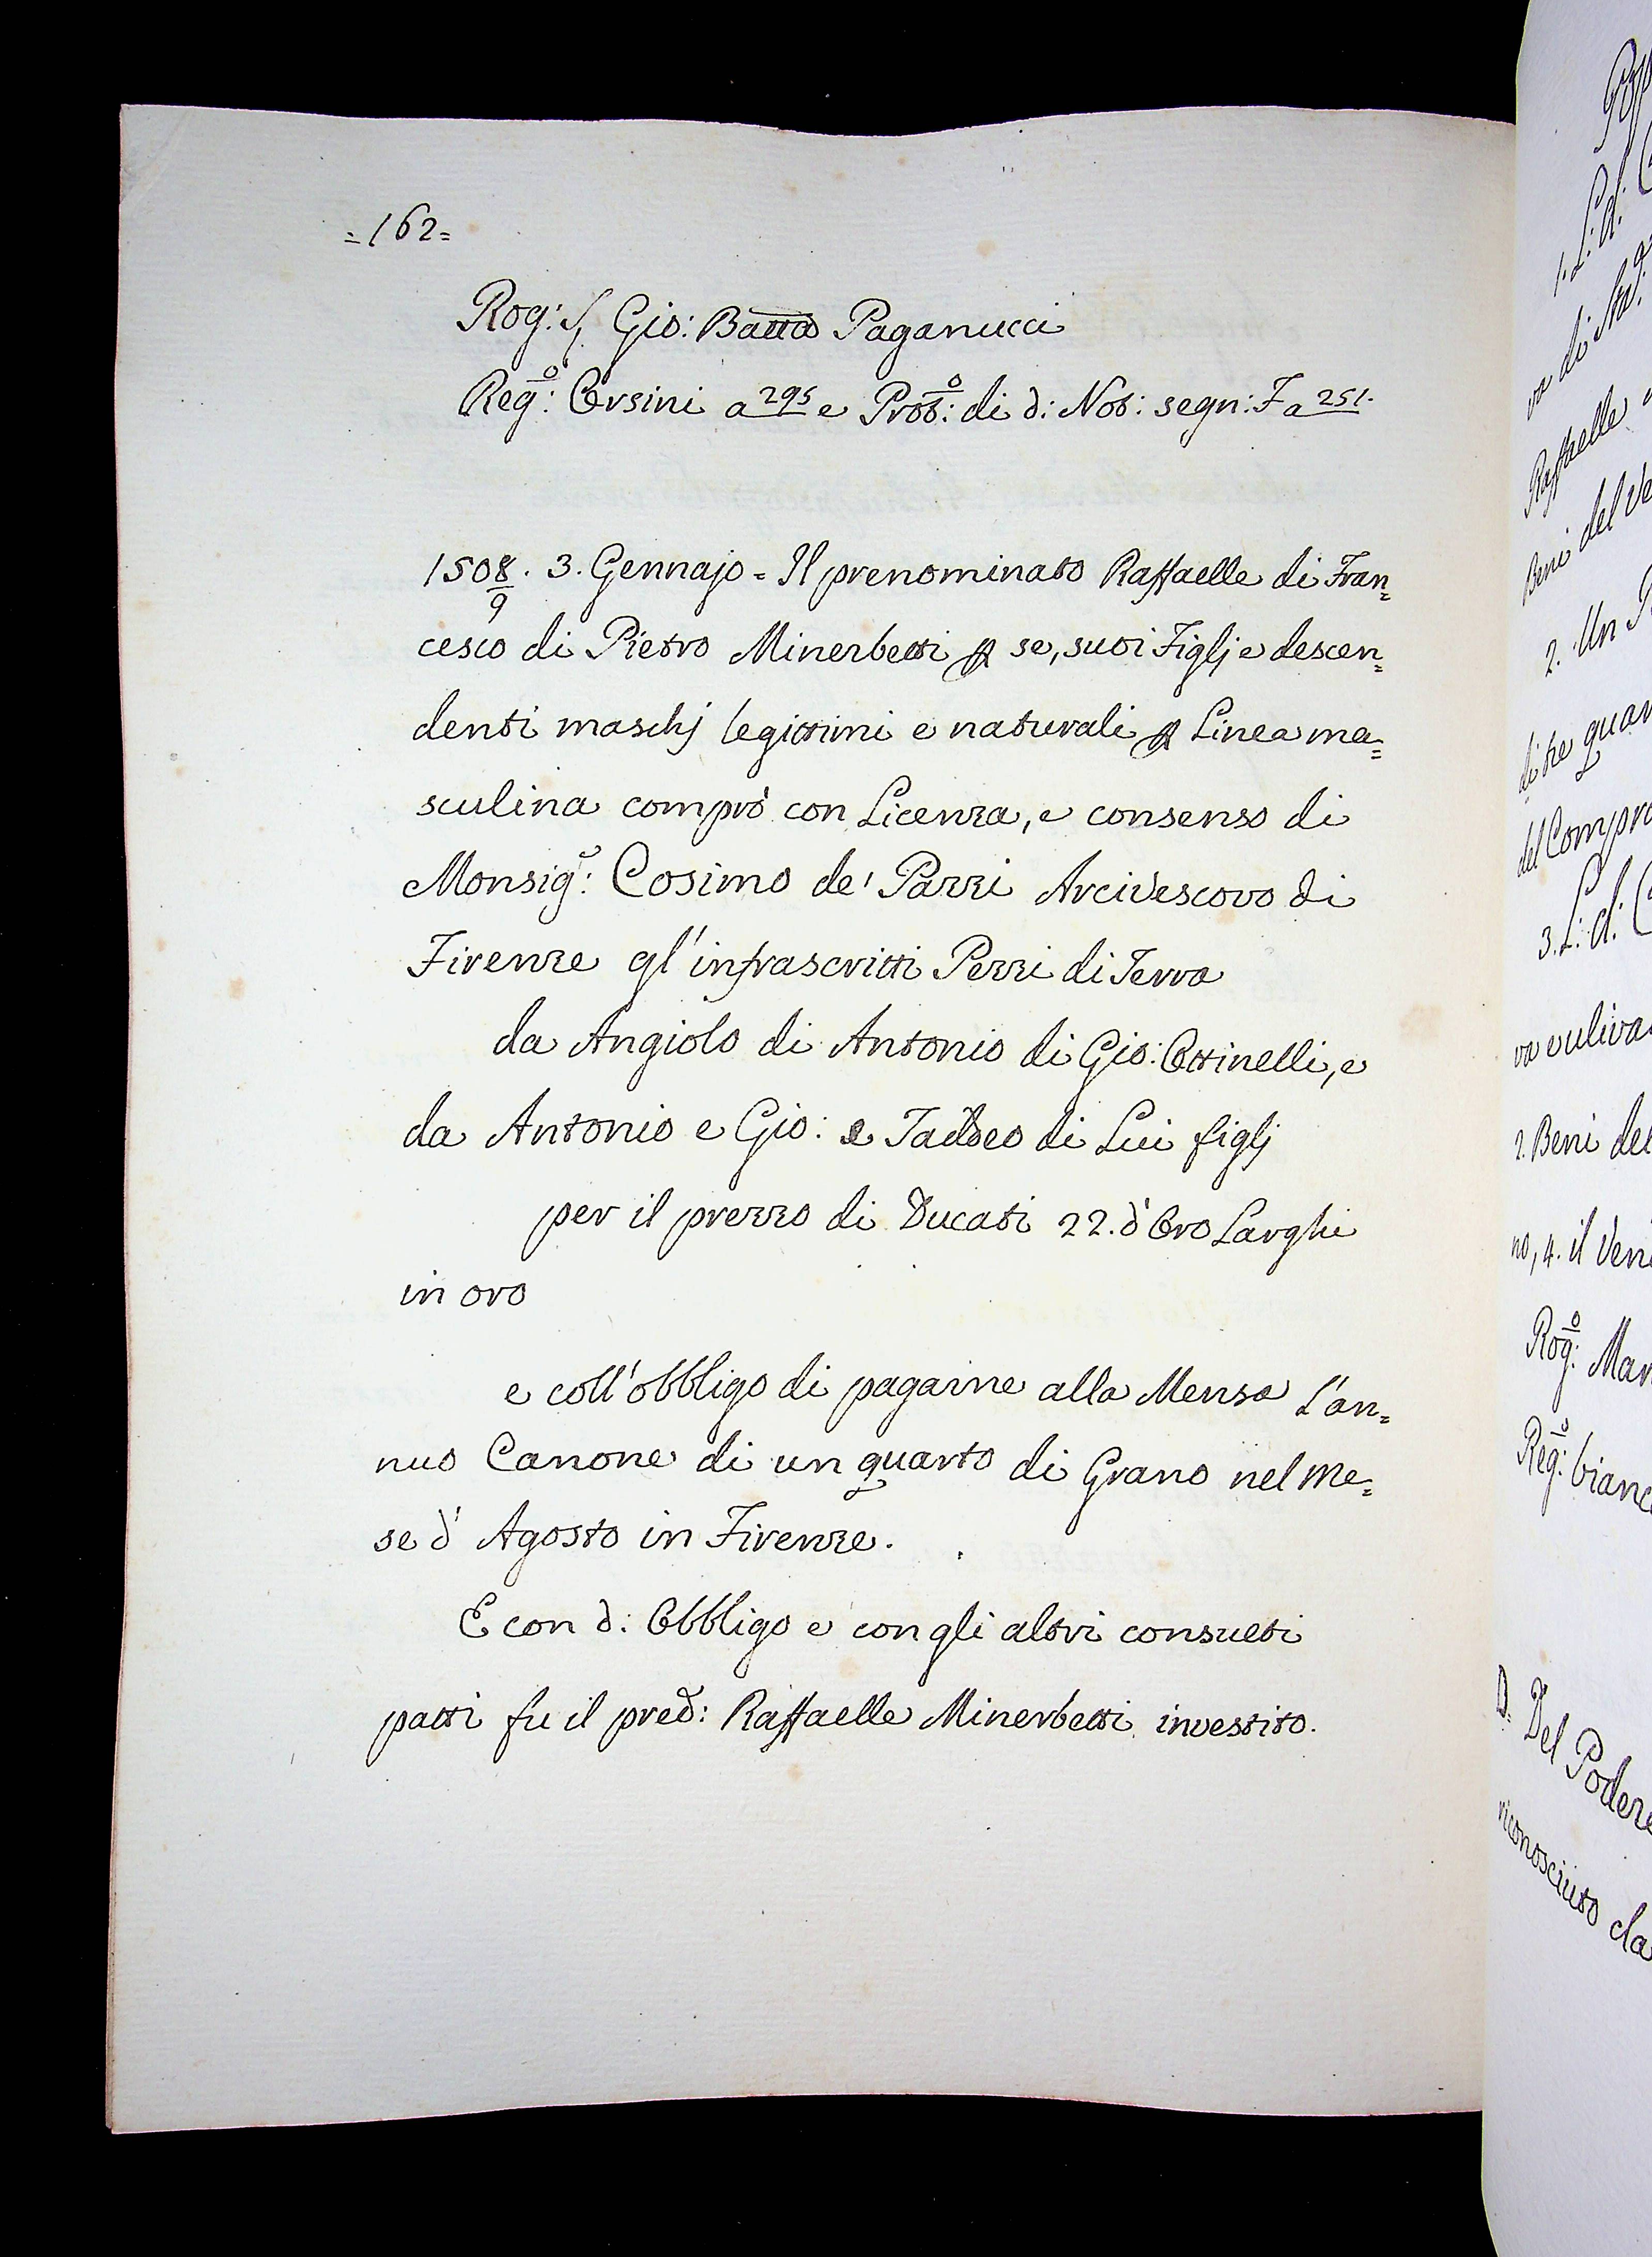 =162=
Rog: S. Gio: Batta Paganucci
Reg.o: Orsini a 295 e Prot.o: di d: Not: segn: F a 251.
1508/9. 3. Gennajo = Il prenominato Raffaelle di Fran=
cesco di Pietro Minerbetti p se, suoi Figlj e descen=
denti maschj legittimi e naturali p Linea ma=
sculina comprò con Licenza, e consenso di
Monsig.e: Cosimo de' Pazzi Arcivescovo di
Firenze gl'infrascritti Pezzi di Terra
da Angiolo di Antonio di Gio: Ottinelli, e
da Antonio e Gio: e Taddeo di Lui figlj
per il prezzo di Ducati 22. d'Oro Larghi
in oro
e coll'obbligo di pagarne alla Mensa l'an=
nuo Canone di un quarto di Grano nel me=
se d'Agosto in Firenze.
E con d: Obbligo e con gli altri consueti
patti fu il pred: Raffaelle Minerbetti investito.
1. L: d:
va di
Raffaelle
Beni del Ve
2. Un P
di tre quar
del Compra
3. L: d:
va uliva
2. Beni del
no, 4. il Ven
Rog.o: Mar
Reg.o: bianc
D. Del Podere
riconosciuto da